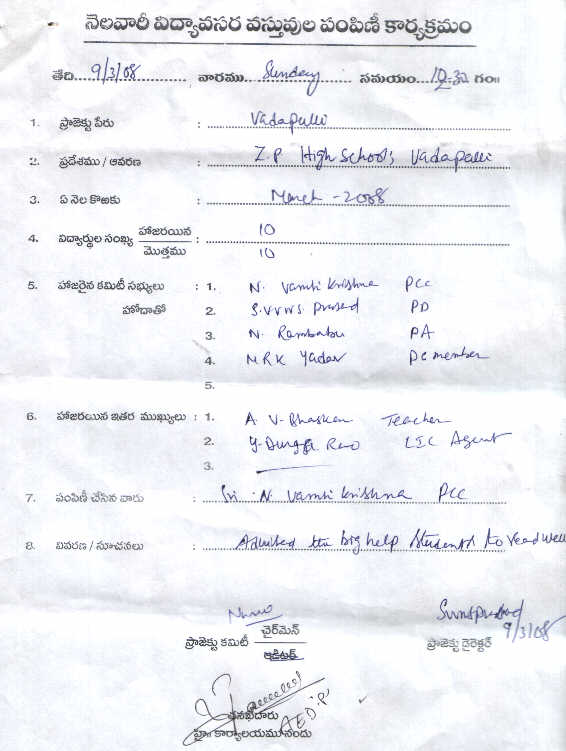 నెలవారీ విద్యావసర వస్తువుల పంపిణీ కార్యక్రమం
తేది 9/3/08 వారము Sunday సమయం 10-30 గం॥
1. ప్రాజెక్టు పేరు : Vadapalli
2. ప్రదేశము / ఆవరణ : Z.P High School, Vadapalli
3. ఏ నెల కొఱకు : March - 2008
4. విద్యార్థుల సంఖ్య హాజరయిన : 10
మొత్తము 10
5. హాజరైన కమిటీ సభ్యులు : 1. N. Vamsi Krishna PCC
హోదాతో 2. S.V.V.W.S. Prasad PD
3. N. Rambabu PA
4. M R K Yadav PC member
5.
6. హాజరయిన ఇతర ముఖ్యులు : 1. A V. Bhaskar Teacher
2. Y. Durga Rao LIC Agent
3.
7. పంపిణీ చేసిన వారు : Sri. N. Vamsi Krishna PCC
8. వివరణ / సూచనలు : Advised the big help Students to read well
చైర్‌మెన్
ప్రాజెక్టు కమిటీ ప్రాజెక్టు డైరెక్టర్ 9/3/08
ఆడిటర్
తనఖీదారు
ప్ర॥ కార్యాలయమునందు A E D 'P'